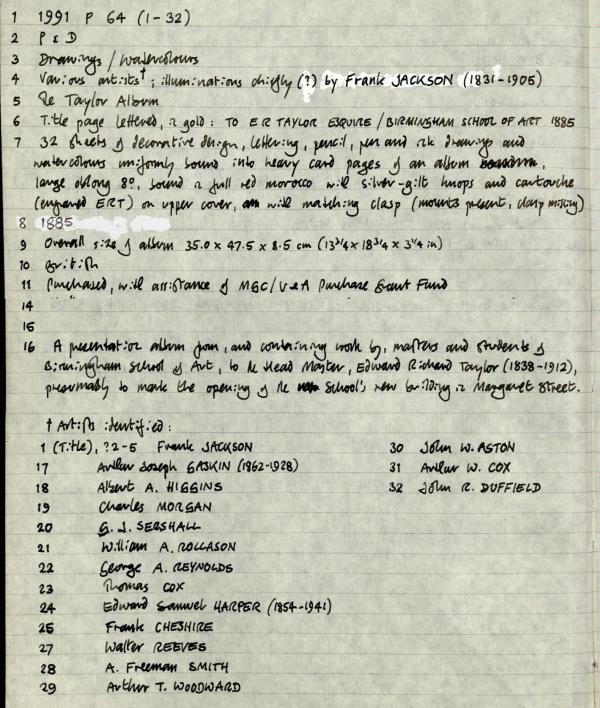 1 1991 P 64 (1-32)
2 P & D
3 Drawings / Watercolours
4 Various artists†; illuminations chiefly (?) by Frank JACKSON (1831-1905)
5 The Taylor Album
6 Title page lettered, in gold: TO E R TAYLOR ESQUIRE / BIRMINGHAM SCHOOL OF ART 1885
7 32 sheets of decorative design, lettering, pencil, pen and ink drawings and
watercolours uniformly bound into heavy card pages of an album
large oblong 8°, bound in full red morocco with silver-gilt knops and cartouche
(engraved ERT) on upper cover, with matching clasp (mounts present, clasp missing)
8 1885
9 Overall size of album 35.0 x 47.5 x 8.5 cm (13 3/4 x 18 3/4 x 3 1/4 in)
10 British
11 Purchased, with assistance of MGC/V&A Purchase Grant Fund
14
15
16 A presentation album from, and containing work by, masters and students of
Birmingham School of Art, to the Head Master, Edward Richard Taylor (1838-1912),
presumably to mark the opening of the School's new building in Margaret Street.
† Artists identified:
1 (Title), ?2-5 Frank JACKSON
17 Arthur Joseph GASKIN (1862-1928)
18 Albert A. HIGGINS
19 Charles MORGAN
20 G. J. SERSHALL
21 William A. ROLLASON
22 George A. REYNOLDS
23 Thomas COX
24 Edward Samuel HARPER (1854-1941)
25 Frank CHESHIRE
27 Walter REEVES
28 A. Freeman SMITH
29 Arthur T. WOODWARD
30 John W. ASTON
31 Arthur W. COX
32 John R. DUFFIELD